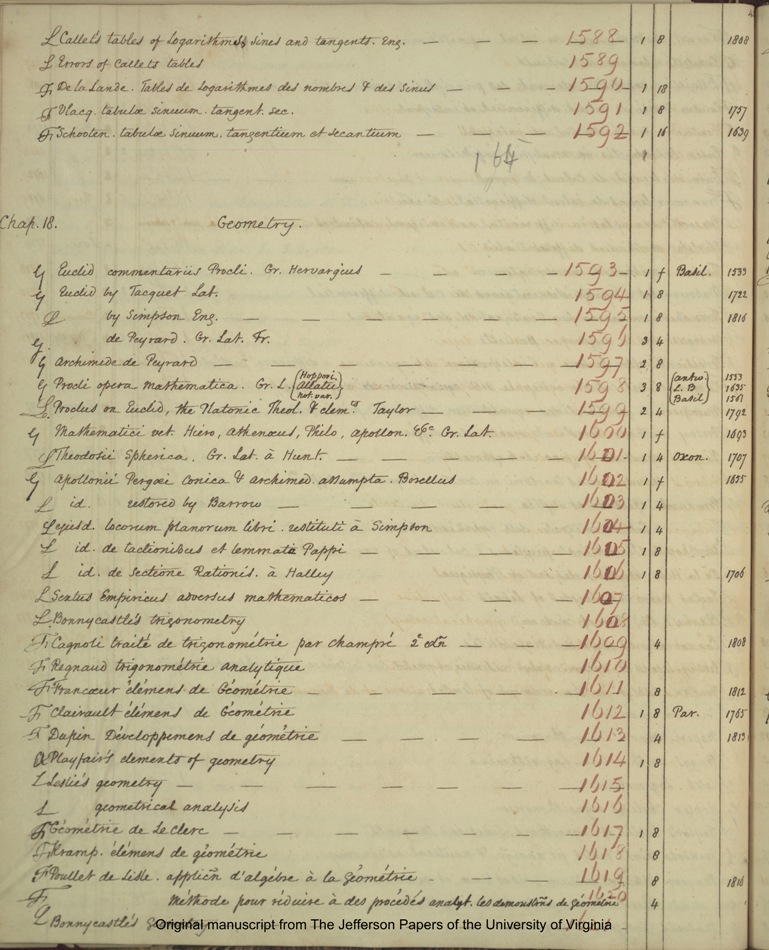 L Callet's tables of Logarithms, sines and tangents. Eng. — — — 1588 1 8 1808
L Errors of Callets tables 1589
F De la Lande. Tables de Logarithmes des nombres & des sinus — 1590 1 18
F Vlacq. tabulæ sinuum. tangent. sec. 1591 1 8 1757
F Schooten. tabulæ sinuum, tangentium et secantium — — — 1592 1 16 1639
164
Chap. 18. Geometry.
G Euclid commentariis Procli. Gr. Hervargius — — — — 1593 1 f Basil. 1533
G Euclid by Tacquet Lat. 1594 1 8 1722
L by Simpson Eng. — — — 1595 1 8 1816
G. de Peyrard. Gr. Lat. Fr. 1596 3 4
G Archimede de Peyrard — — — — 1597 2 8
G Procli opera mathematica. Gr. L. {Hoppori. Allatii not. var.} 1598 3 8 {antw L. B Basil} 1553 1635 1561
L. Proclus on Euclid, the Platonic Theol. & elemts Taylor — — 1599 2 4 1792
G Mathematici vet. Hiero, Athenæus, Philo, Apollon. &c Gr. Lat. 1600 1 f 1693
L Theodosii Spherica. Gr. Lat. à Hunt. — — — 1601 1 4 Oxon. 1707
G Apollonii Pergæi Conica & Archimed. assumpta. Borellus 1602 1 f 1655
L id. restored by Barrow — — — — 1603 1 4
L ejusd. locorum planorum libri. restituti à Simpson 1604 1 4
L id. de tactionibus et lemmata Pappi — — — 1605 1 8
L id. de Sectione Rationis. à Halley 1606 1 8 1706
L Sextus Empiricus adversus mathematicos — — — 1607
L. Bonnycastle's trigonometry 1608
F Cagnoli traité de trigonométrie par Champré 2e. edn — — 1609 4 1808
F Regnaud trigonométrie analytique 1610
F Francœur élémens de Géométrie — — — — 1611 8 1812
F Clairault élémens de Géométrie 1612 1 8 Par. 1765
F Dupin Développemens de géométrie — — — 1613 4 1813
Playfair's elements of geometry 1614 1 8
L Leslie's geometry — — — — 1615
L geometrical analysis 1616
F Géométrie de Le Clerc — — — — 1617 1 8
F Kramp. élémens de géométrie 1618 8
F Poullet de Lisle. applicñ d'algébre à la géométrie — — — 1619 8 1816
F méthode pour réduire à des procédés analyt. les demonstrñs de géométrie 1620 4
L Bonnycastle's
Original manuscript from The Jefferson Papers of the University of Virginia